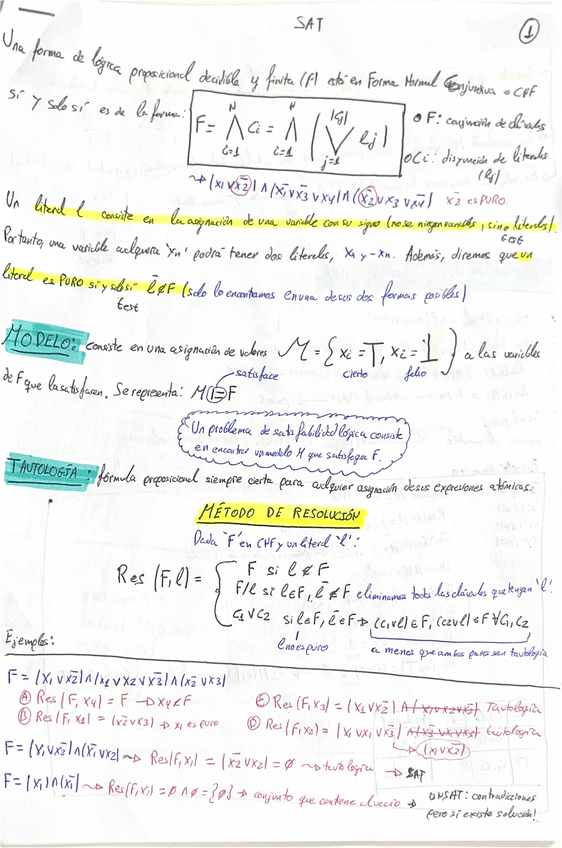 SAT
1
Una forma de lógica proposicional decidible y finita (F) está en Forma Normal Conjuntiva o CNF
sí y solo sí es de la forma:
F = ⋀ᵢ₌₁ᴺ Cᵢ = ⋀ᵢ₌₁ᴺ (⋁ⱼ₌₁^|Cⱼ| ℓⱼ)
• F: conjunción de cláusulas
○ Ci: disyunción de literales (lj)
→ (x₁ ∨ x̄₂) ∧ (x̄₁ ∨ x̄₃ ∨ x₄) ∧ (x̄₂ ∨ x₃ ∨ x₄) x̄₂ es PURO
Un literal l consiste en la asignación de una variable con su signo (no se niegan variables, sino literales).
Portanto, una variable cualquiera 'xn' podrá tener dos literales, x₁ y -xn. Además, diremos que un
test
literal es PURO si y solo si l̄ ∉ F (solo lo encontramos en una de sus dos formas posibles)
test
MODELO: consiste en una asignación de valores M = {xi = T, xi = ⊥} a las variables
cierto falso
de F que la satisfacen. Se representa: M ⊨ F
satisface
Un problema de satisfabilidad lógica consiste
en encontrar un modelo M que satisfaga F.
TAUTOLOGÍA: fórmula proposicional siempre cierta para cualquier asignación de sus expresiones atómicas.
MÉTODO DE RESOLUCIÓN
Dada 'F' en CNF y un literal 'l':
Res (F, l) =
F si l ∉ F
F/l si l ∈ F, l̄ ∉ F eliminamos todas las cláusulas que tengan 'l'.
C₁ ∨ C₂ si l ∈ F, l̄ ∈ F → (C₁ ∨ l) ∈ F, (C₂ ∨ l̄) ∈ F ∀ C₁, C₂
l no es puro
a menos que ambos puros sean tautología
Ejemplos:
F = (x₁ ∨ x̄₂) ∧ (x₁ ∨ x₂ ∨ x̄₃) ∧ (x̄₂ ∨ x₃)
Ⓐ Res (F, x₄) = F → x₄ ∉ F
Ⓒ Res (F, x₃) = (x₁ ∨ x̄₂) Tautología
Ⓑ Res (F, x₁) = (x̄₂ ∨ x₃) → x₁ es puro
Ⓓ Res (F, x₂) = (x₁ ∨ x₁ ∨ x̄₃) tautología
F = (x₁ ∨ x̄₂) ∧ (x̄₁ ∨ x₂) → Res (F, x₁) = (x̄₂ ∨ x₂) = ∅ → tautología → SAT
F = (x₁) ∧ (x̄₁) → Res (F, x₁) = ∅ ∧ ∅ = {∅} → conjunto que contiene al vacío → UNSAT: contradicciones
pero si existe solución!